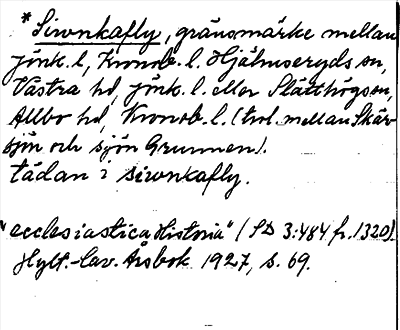 *Siwnkafly, gränsmärke mellan
Jönk. l, Kronob. l. Hjälmseryds sn,
Västra hd, Jönk. l. eller Slätthögs sn,
Allbo hd, Kronob. l. (trol. mellan Skär-
sjön och sjön Grunnen).
tädan i siwnkafly.
"ecclesiastica Historia" (SD 3:484 fr. 1320).
Hylt.-Cav. Årsbok 1927, s. 69.